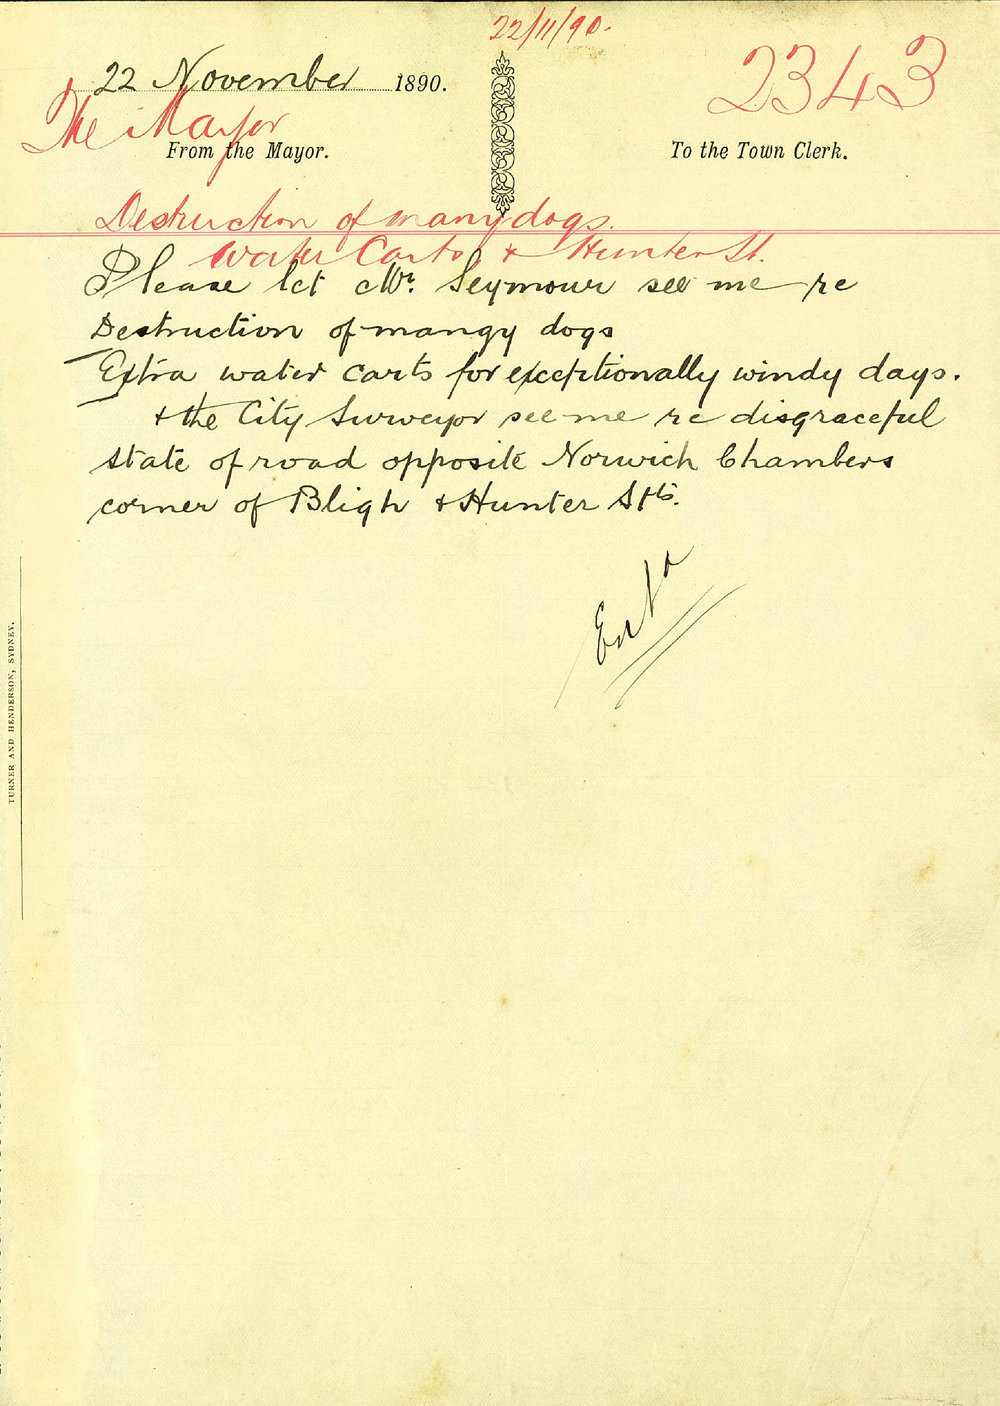 22/11/90.
22 November 1890.
2343
The Mayor
From the Mayor.
To the Town Clerk.
Destruction of many dogs.
Water Carts & Hunter St.
Please let Mr. Seymour see me re
Destruction of mangy dogs
Extra water carts for exceptionally windy days.
& the City Surveyor see me re disgraceful
state of road opposite Norwich Chambers
corner of Bligh & Hunter Sts.
TURNER AND HENDERSON, SYDNEY.